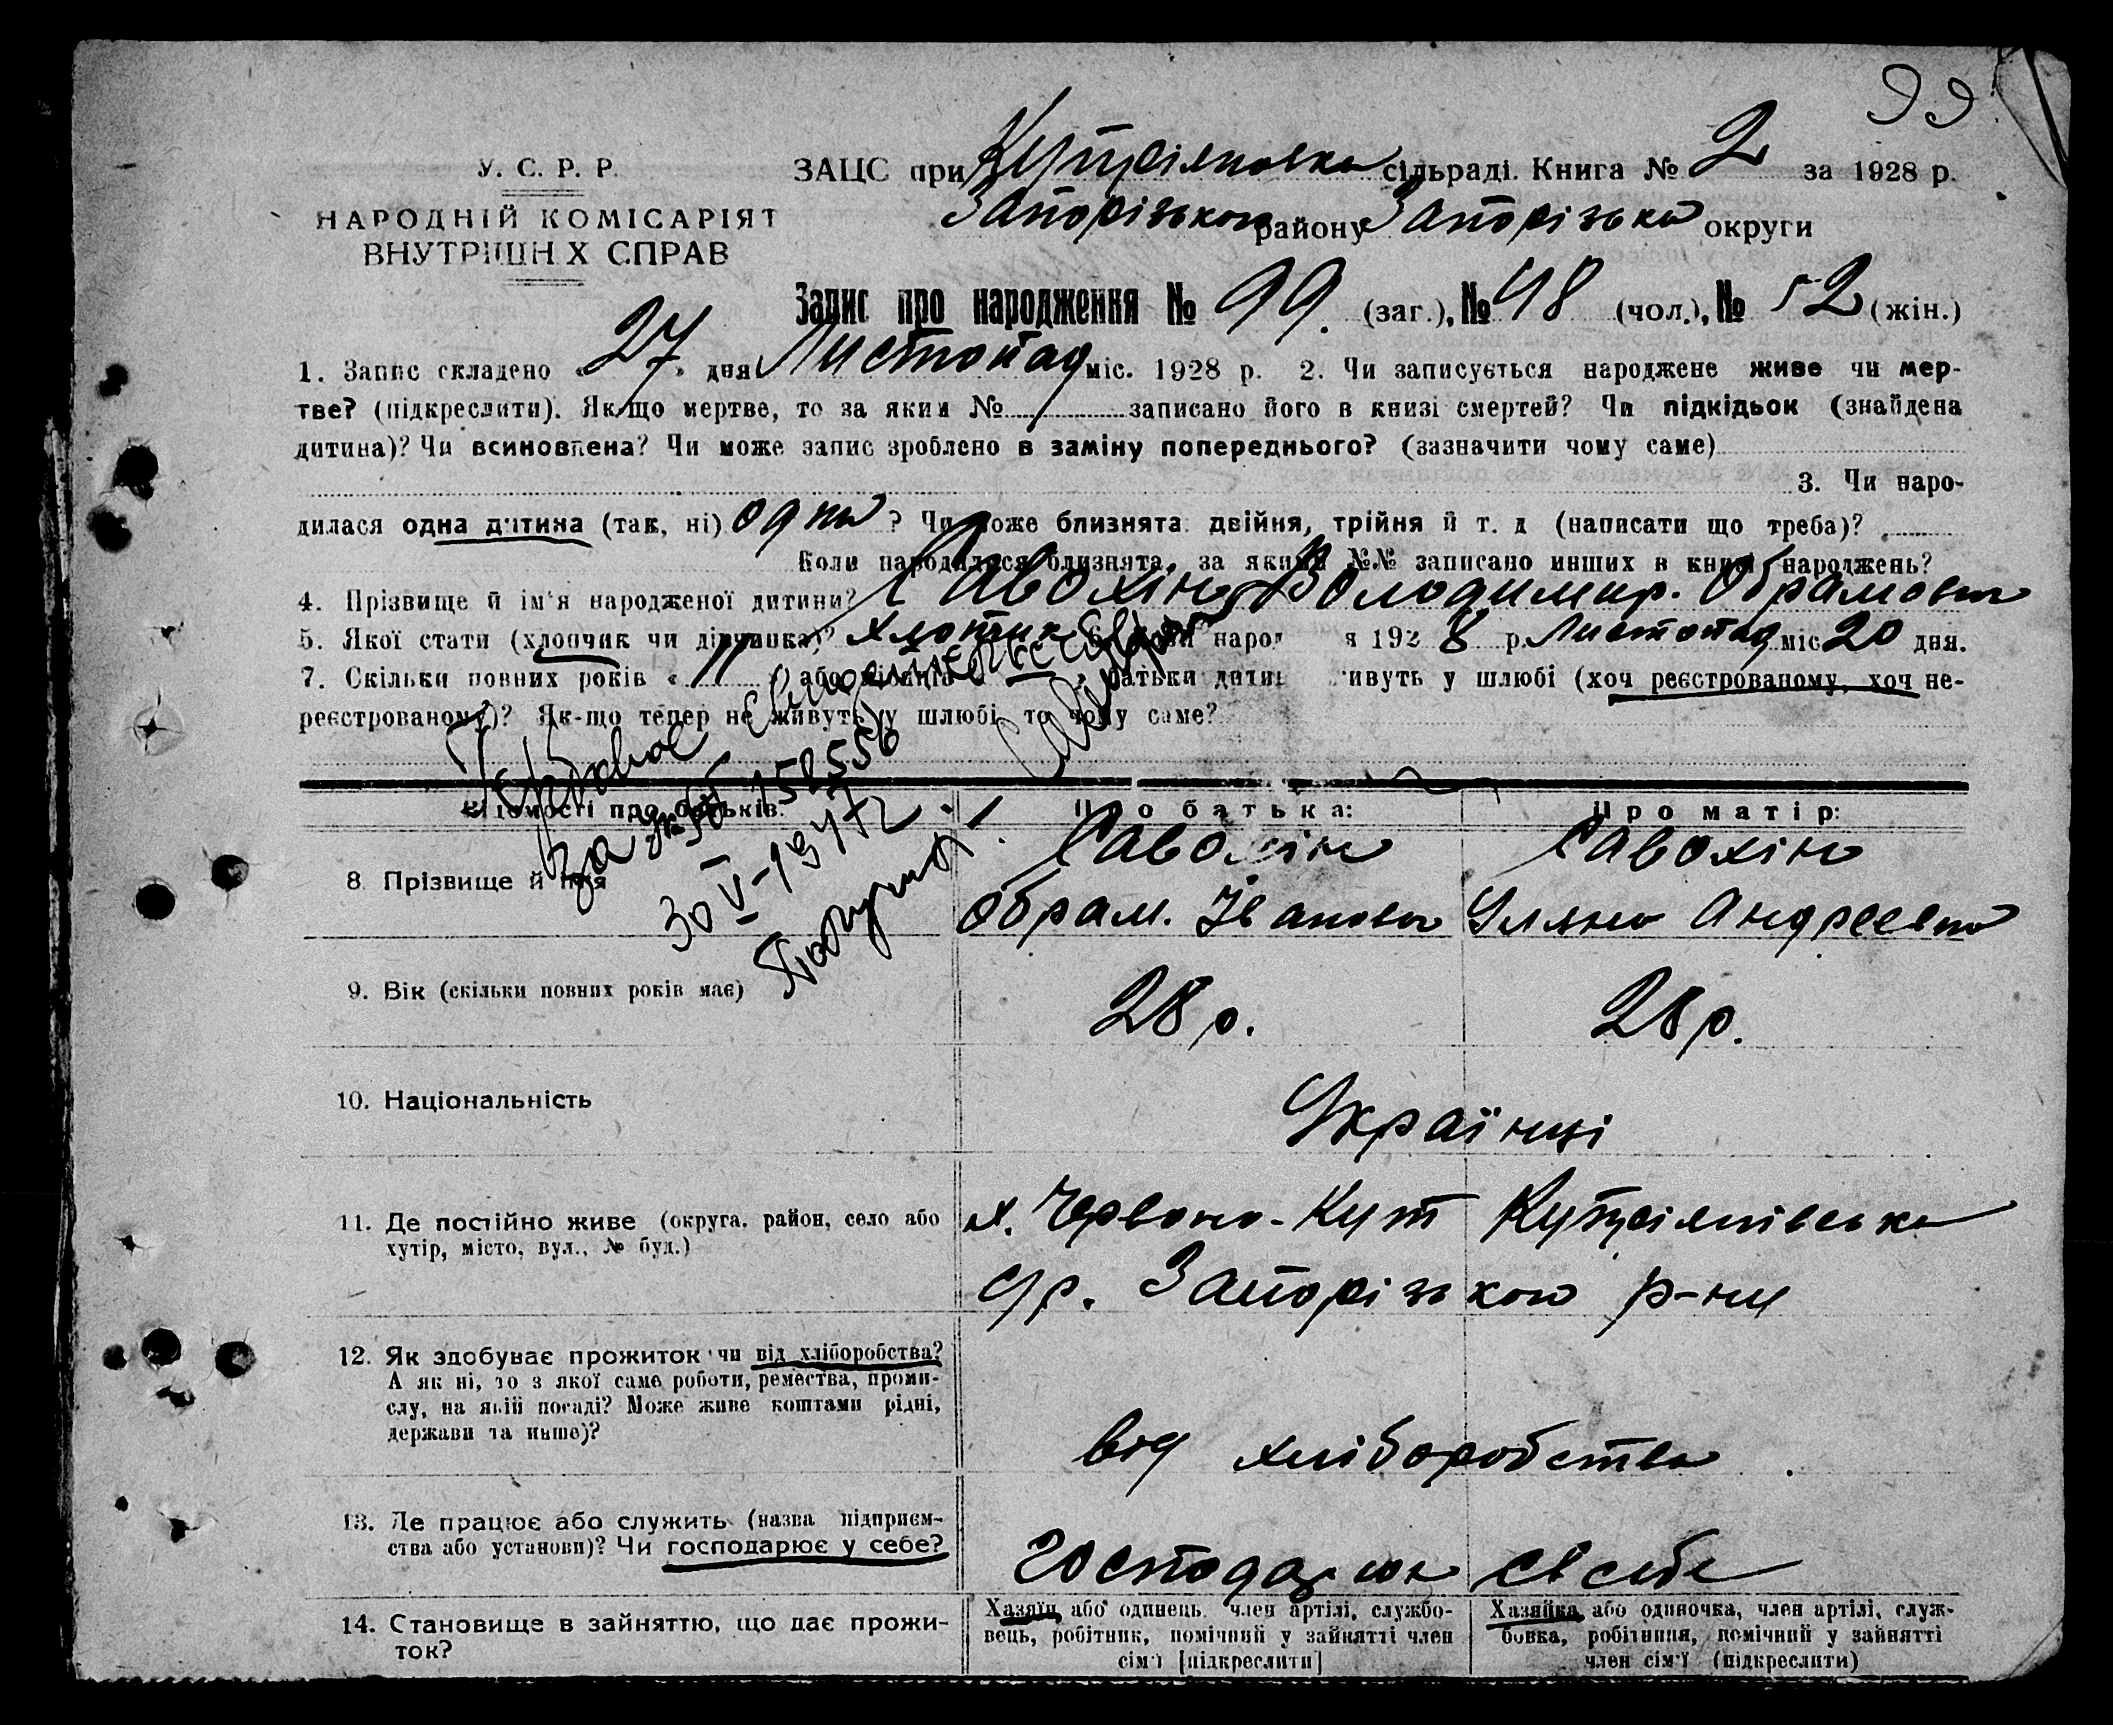 99
У. С. Р. Р.
НАРОДНІЙ КОМІСАРІЯТ
ВНУТРІШН Х СПРАВ
ЗАЦС при сільраді. Книга № 2 за 1928 р.
Запорізького району Запорізька округи
Запис про народження № 99. (заг.), № 48 (чол.), № 52 (жін.)
1. Запис складено « 27 » дня Листопад міс. 1928 р. 2. Чи записується народжене живе чи мер-
тве? (підкреслити). Як-що мертве, то за яким № записано його в книзі смертей? Чи підкідьок (знайдена
дитина)? Чи всиновлена? Чи може запис зроблено в заміну попереднього? (зазначити чому саме)
3. Чи наро-
дилася одна дитина (так, ні) одна ? Чи може близнята: двійня, трійня й т. д (написати що треба)?
Коли народилися близнята, за яким №№ записано инших в книзі народжень?
4. Прізвище й ім'я народженої дитини? Савохін Володимир. Обрамович
5. Якої стати (хлопчик чи дівчинка)? хлопчик наро я 1928 р. Листопад міс 20 дня.
7. Скільки повних років « » або батьки дитин ивуть у шлюбі (хоч реєстрованому, хоч не-
реєстрованому)? Як-що тепер не живуть у шлюбі, то чому саме?
158556
30 V-1947г.
Відомості про батьків: Про батька: Про матір:
8. Прізвище й ім'я Савохін Савохін
Обрам. Іванович Уляна Андреевна
9. Вік (скільки повних років має) 28 р. 28 р.
10. Національність Українці
11. Де постійно живе (округа, район, село або х. Червоно-Кут
хутір, місто, вул., № буд.) с/р. Запорізького р-ну
12. Як здобуває прожиток чи від хліборобства?
А як ні, то з якої саме роботи, ремества, проми-
слу, на якій посаді? Може живе коштами рідні,
держави та инше)? від хліборобства
13. Де працює або служить (назва підприєм-
ства або установи)? Чи господарює у себе?
14. Становище в зайняттю, що дає прожи-
ток?
Хазяїн, або одинець, член артілі, службо-
вець, робітник, помічний у зайнятті член
сім'ї [підкреслити]
Хазяйка, або одиночка, член артілі, служ-
бовка, робітниця, помічний у зайнятті
член сім'ї (підкреслити)